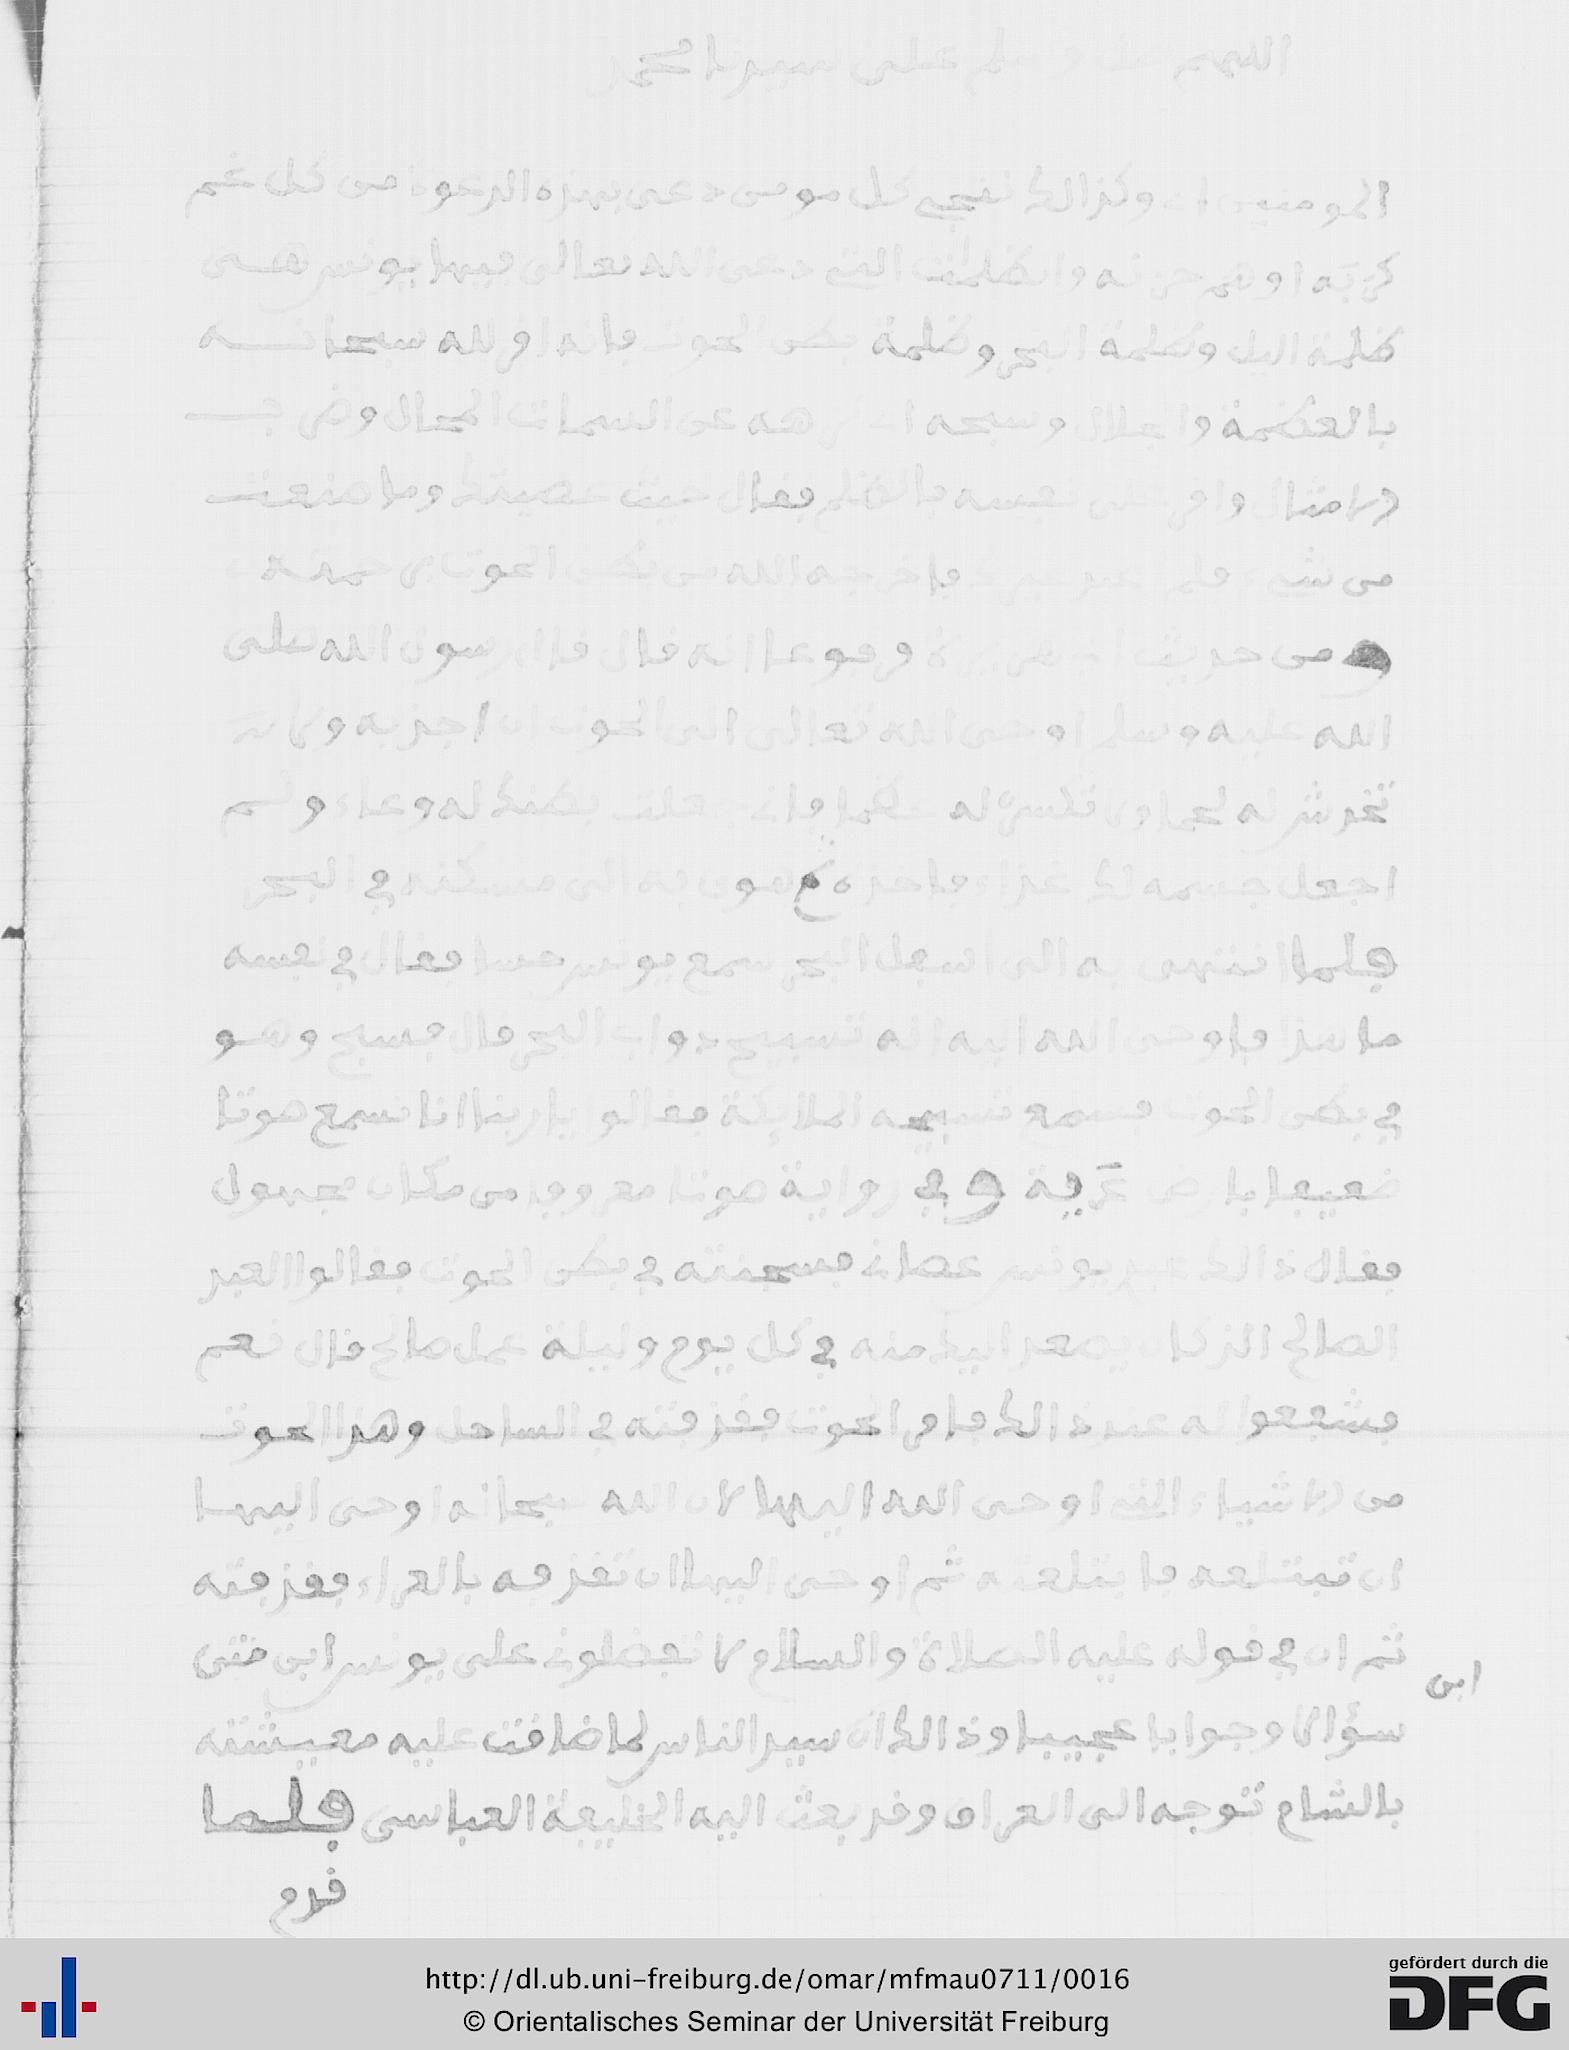 اللهم صل وسلم على سيدنا محمد
المومنين اي وكذالك ننجي كل مومن دعى بهذه الدعوة من كل غم
كربة او هم حزنه والظلمات التي دعى الله تعالى فيها يونس هي
ظلمة اليل وظلمة البحر وظلمة بطن الحوت فانه اقر لله سبحانه
بالعظمة والجلال وسبحه عن السمات المحال وضرب
الامثال واقر على نفسه بالظلم فقال حيث عصيتك وما صنعت
من شيء فلم اعبد غيرك فاخرجه الله من بطن الحوت برحمته
ومن حديث ابي هريرة مرفوعا انه قال قال رسول الله صلى
الله عليه وسلم اوحى الله تعالى الى الحوت ان ولا
تخدش له لحما ولا تكسر له عظما فاني جعلت بطنك له وعاء ولم
اجعل جسمه لك غذاء فاخذه ثم هوى به الى مسكنه في البحر
فلما انتهى به الى اسفل البحر سمع يونس حسا فقال في نفسه
ما هذا فاوحى الله اليه انه تسبيح دواب البحر قال فسبح وهو
في بطن الحوت فسمع تسبيحه الملايكة فقالوا يا ربنا انا نسمع صوتا
ضعيفا بارض غريبة وفي رواية صوتا معروفا من مكان مجهول
فقال ذالك عبدي يونس عصاني فسجنته في بطن الحوت فقالوا العبد
الصالح الذي كان يصعد اليك منه في كل يوم وليلة عمل صالح قال نعم
فشفعوا له عند ذالك فامر الحوت فقذفته في الساحل وهذا الحوت
من الاشياء التي اوحى الله اليها لان الله سبحانه اوحى اليها
ان تبتلعه فابتلعته ثم اوحى اليها ان تقذفه بالعراء فقذفته
ثم ان في قوله عليه الصلاة والسلام لا تفضلوني على يونس ابن متى
ابن
سؤالا وجوابا عجيبا وذالك ان سيد الناس لما ضاقت عليه معيشته
بالشام توجه الى العراق وقد بعث اليه الخليفة العباسي فلما
قدم
http://dl.ub.uni-freiburg.de/omar/mfmau0711/0016
© Orientalisches Seminar der Universität Freiburg
gefördert durch die
DFG